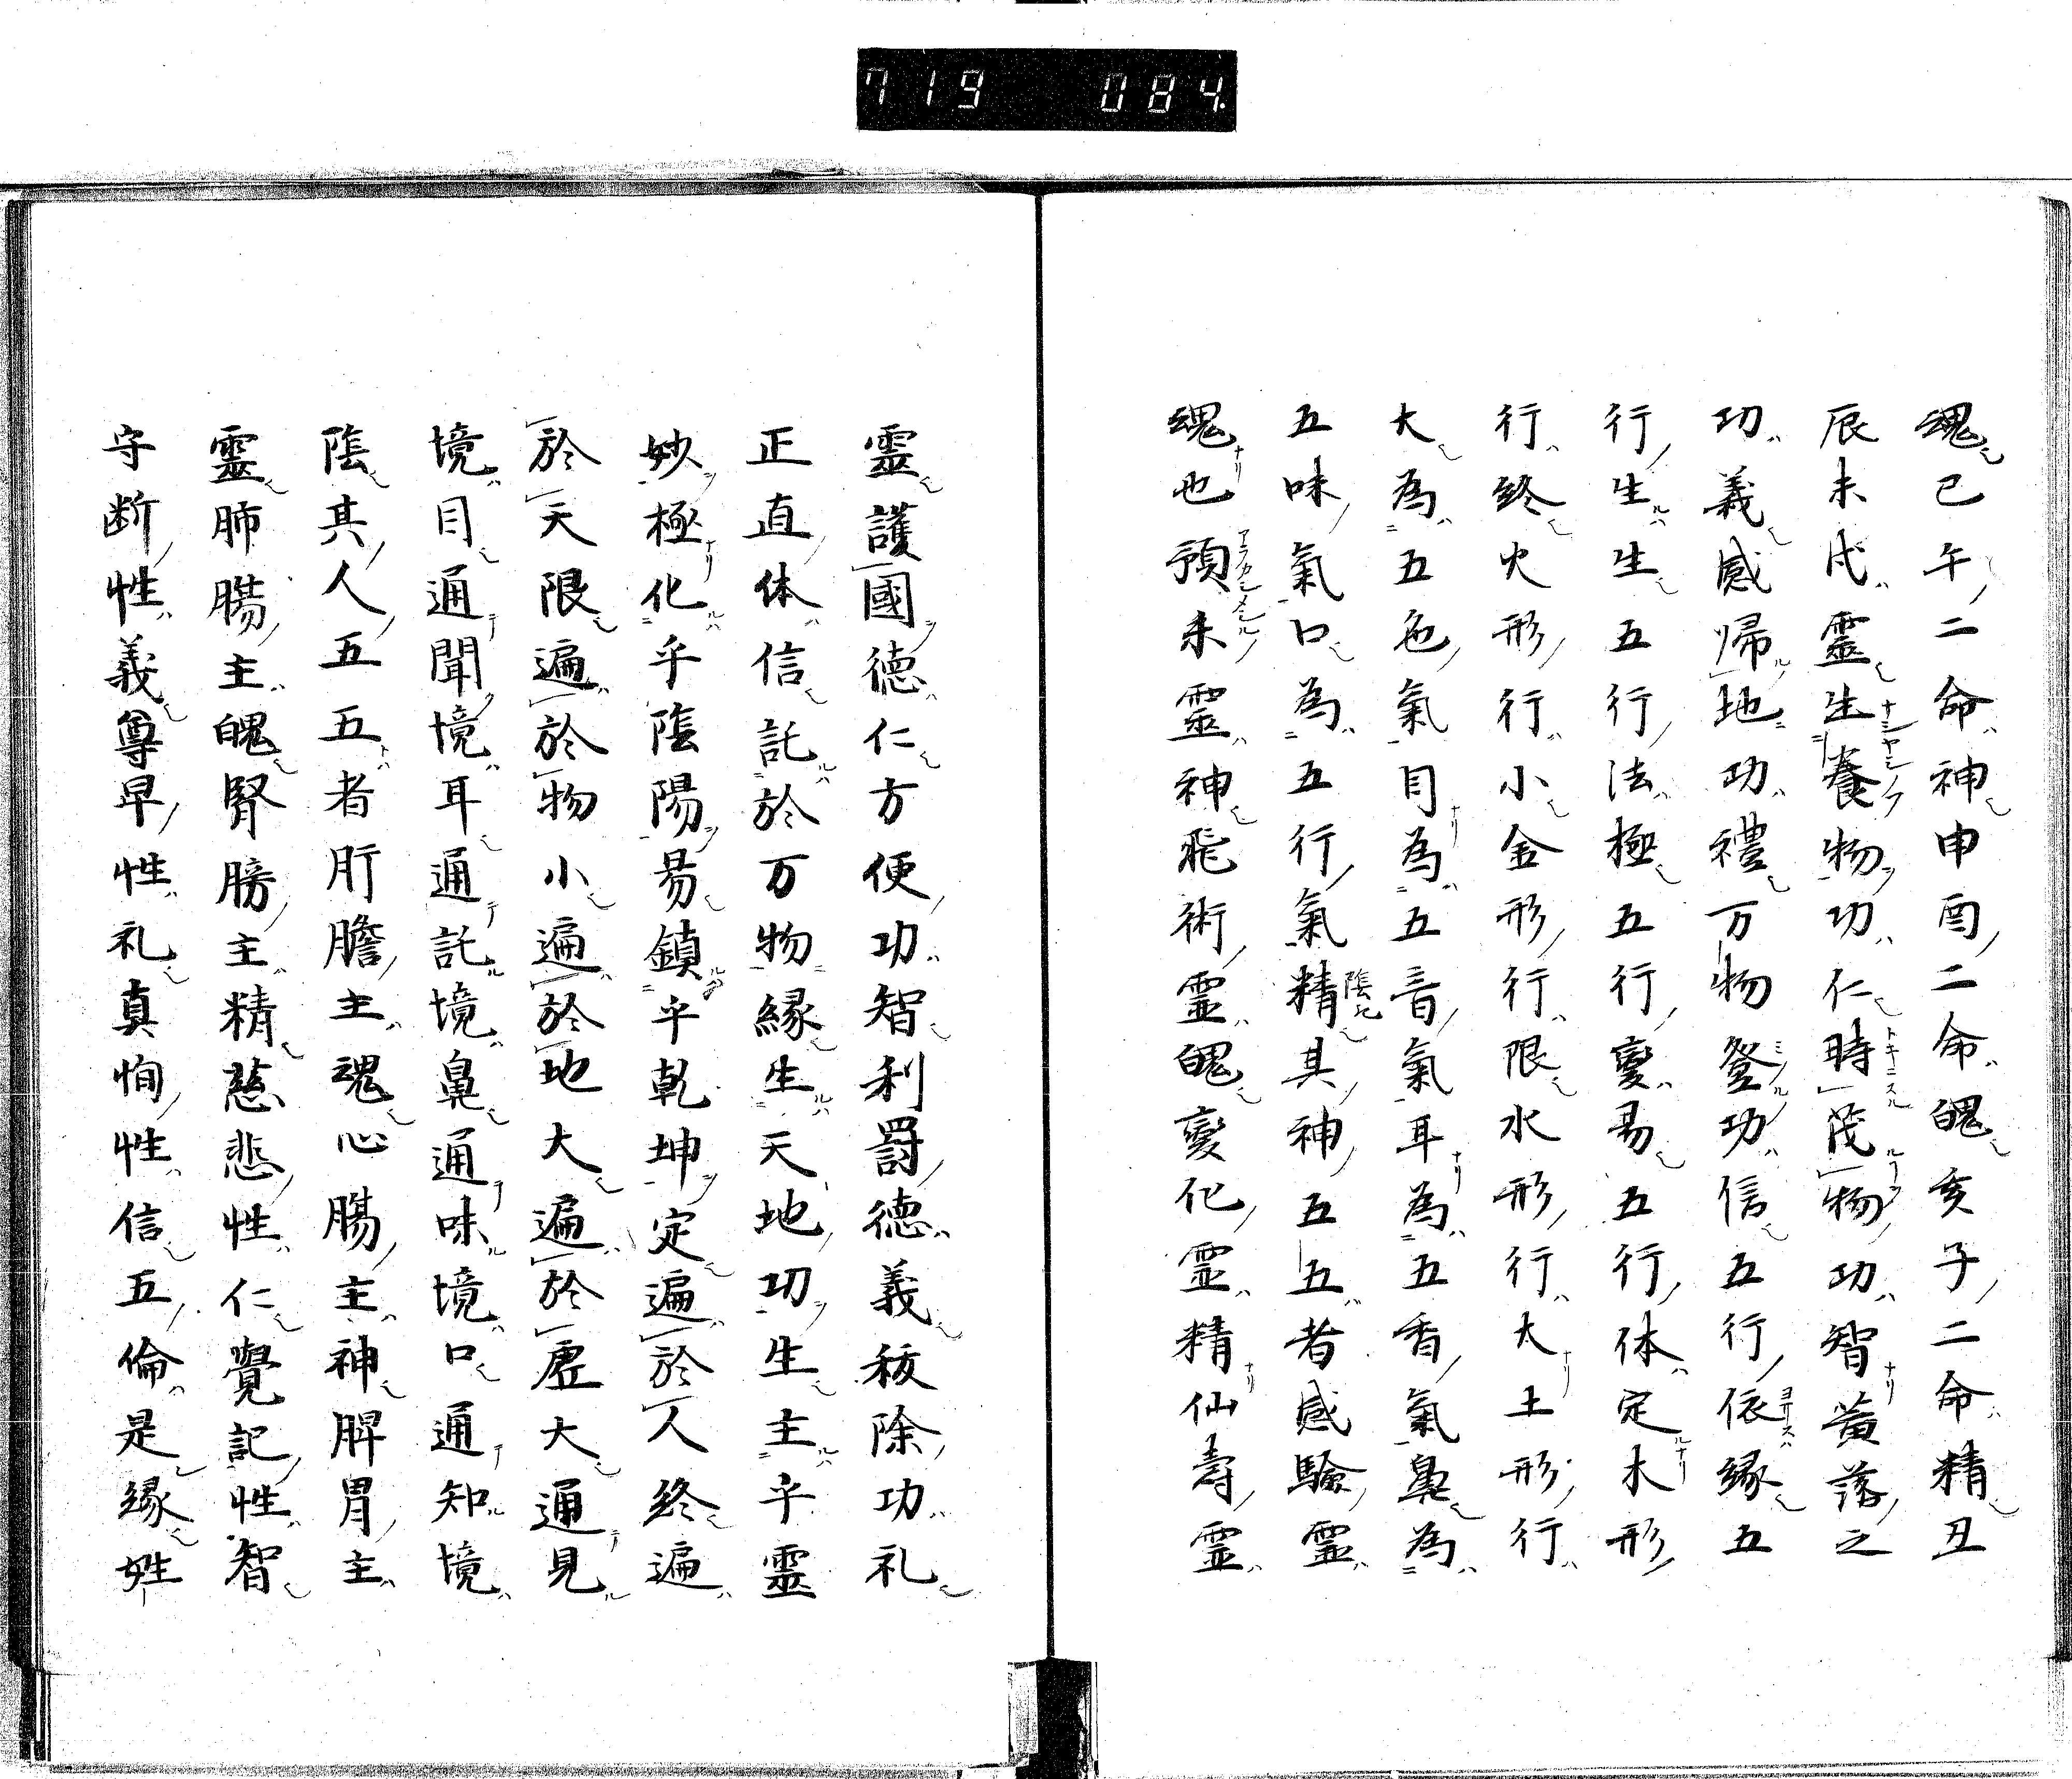 719 084
魂巳午二命神申酉二命魄亥子二命精丑
辰未戌靈生養物功仁時茂物功智黄落之
功義感帰地功禮万物登功信五行依縁五
行生生五行法極五行變易五行体定木形
行終火形行小金形行限水形行大土形行
大為五色氣目為五音氣耳為五香氣鼻為
五味氣口為五行氣精其神五五者感驗霊
魂也預未霊神飛術霊魄變化霊精仙壽霊
靈護國徳仁方便功智利罰徳義秡除功礼
正直体信託於万物縁生天地功生主乎靈
妙極化乎陰陽易鎮乎乾坤定遍於人終遍
於天限遍於物小遍於地大遍於虚大通見
境目通聞境耳通託境鼻通味境口通知境
陰其人五五者肝膽主魂心腸主神脾胃主
靈肺腸主魄腎膀主精慈悲性仁覺記性智
守断性義尊卑性礼真恂性信五倫是縁姓